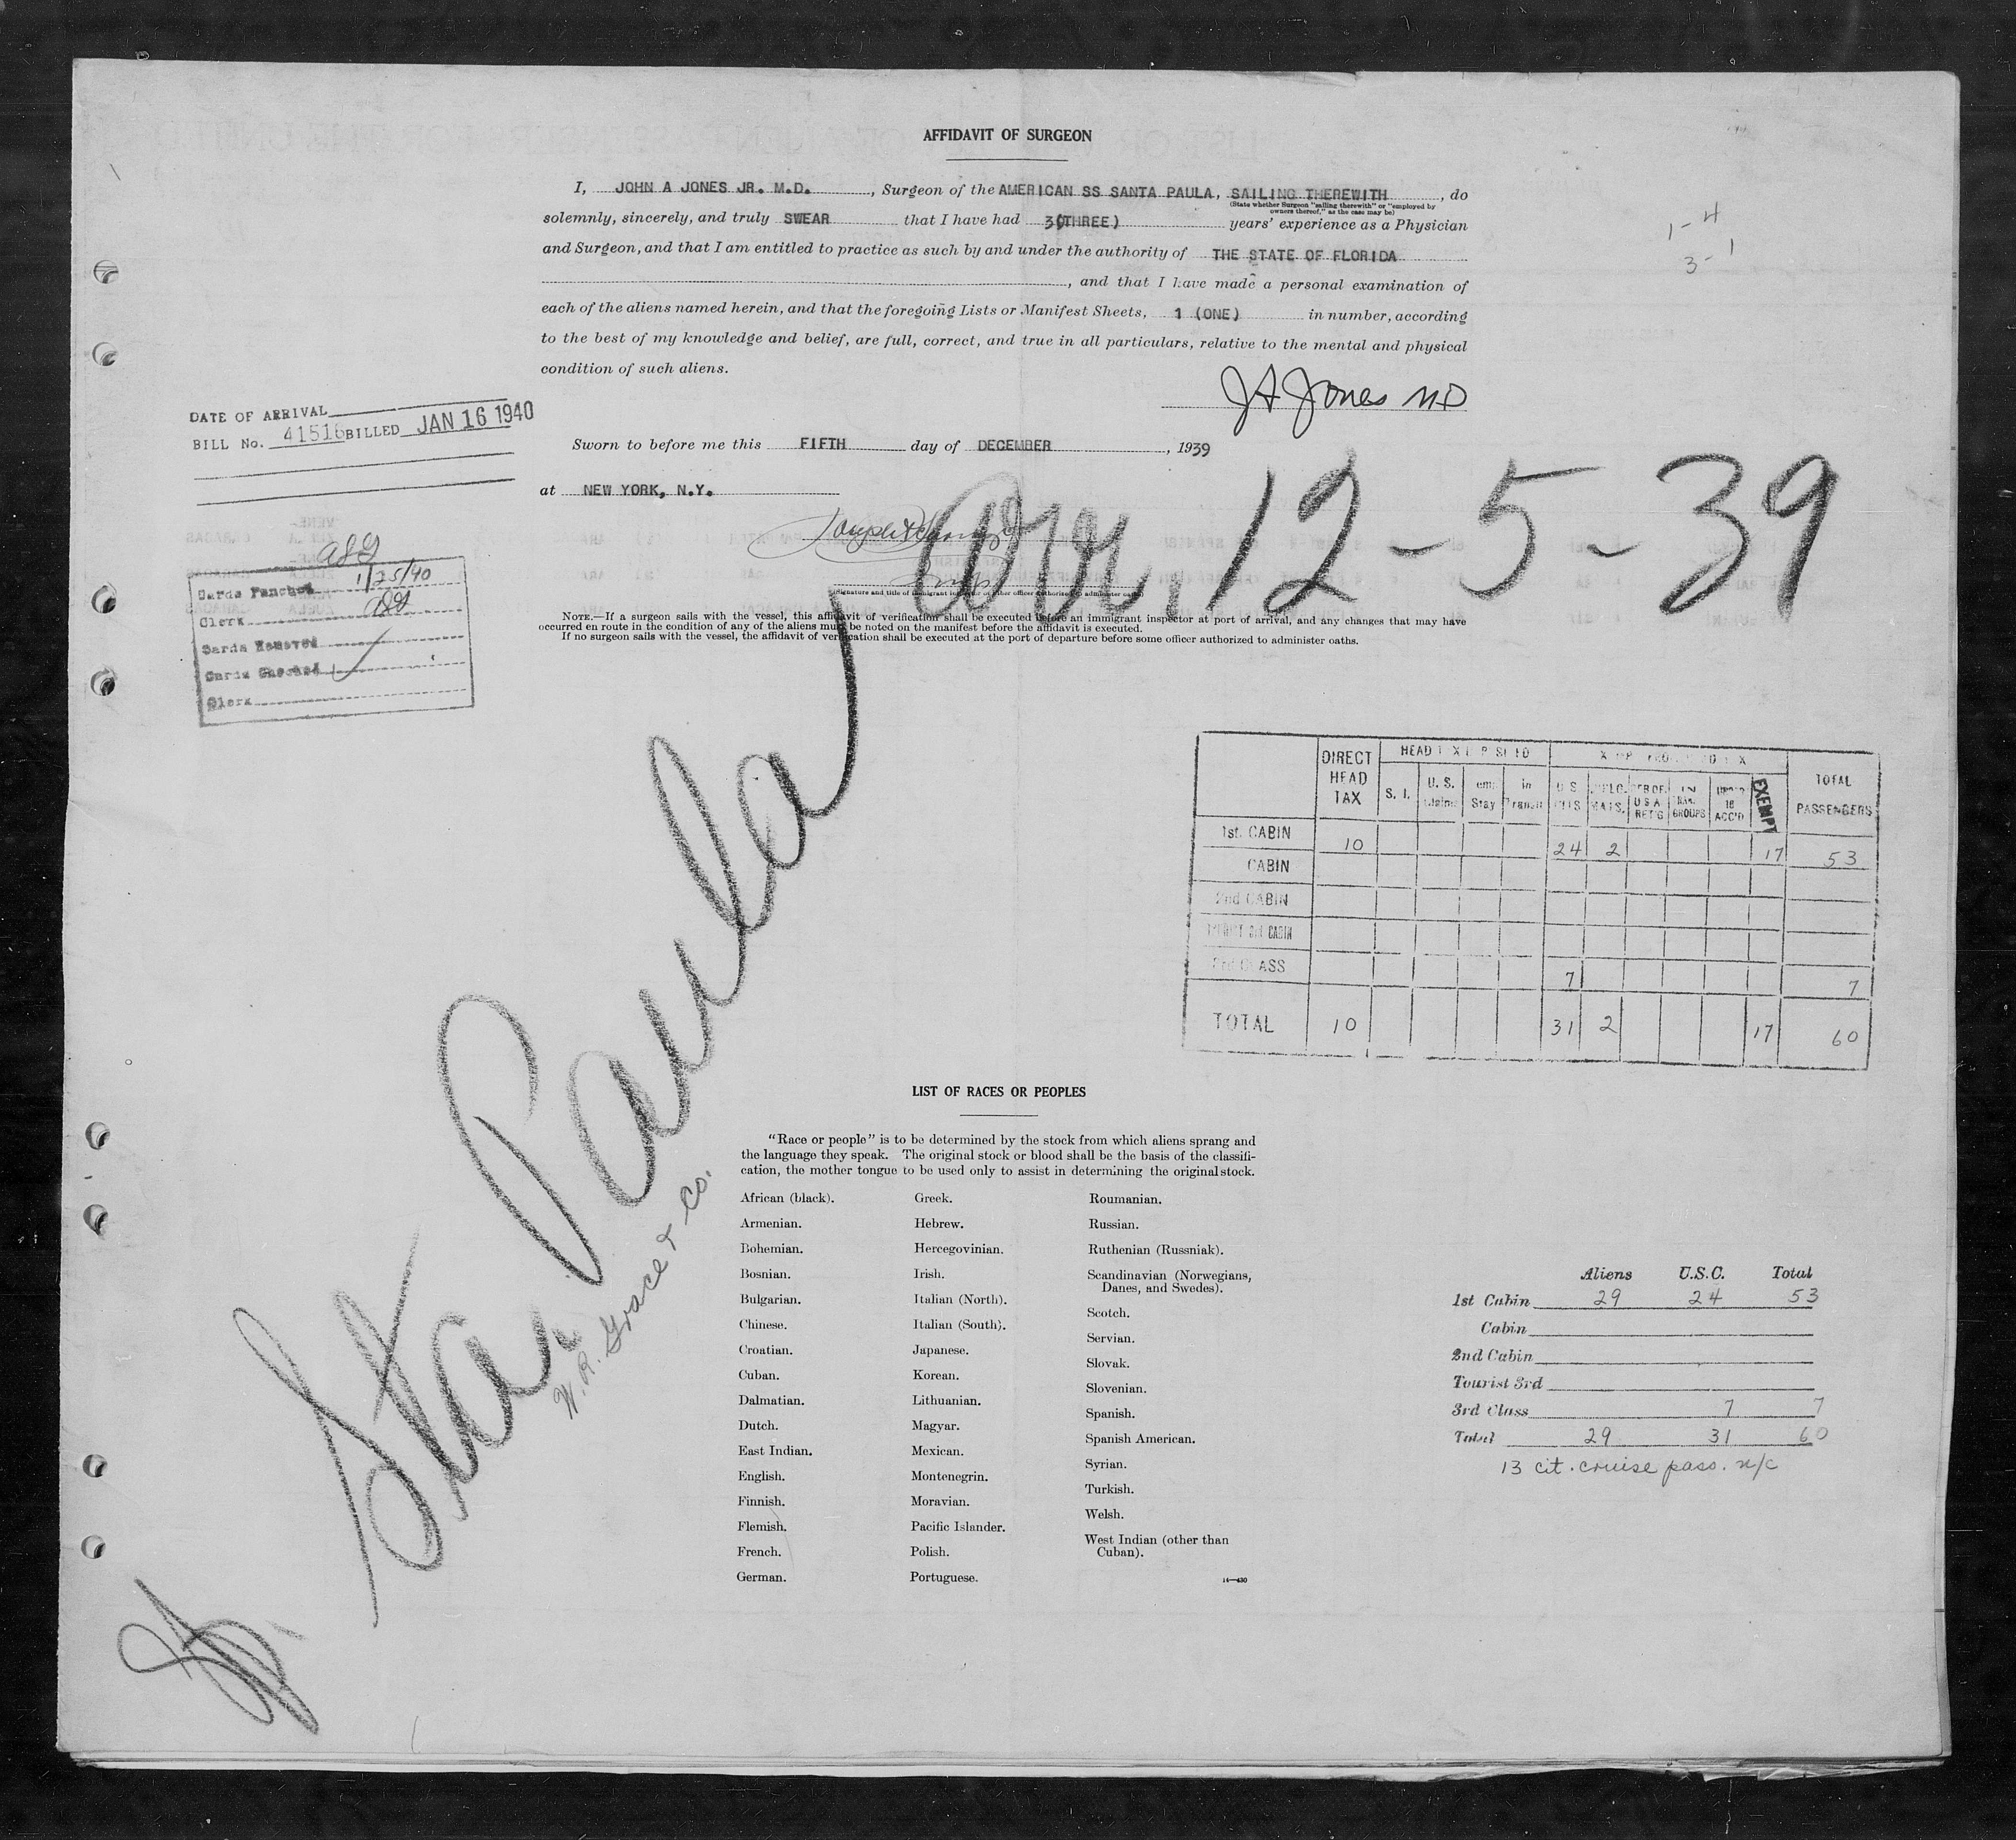 AFFIDAVIT OF SURGEON
I, JOHN A JONES JR. M.D. , Surgeon of the AMERICAN SS SANTA PAULA, SAILING THEREWITH , do
(State whether Surgeon "sailing therewith" or "employed by
owners thereof," as the case may be)
solemnly, sincerely, and truly SWEAR that I have had 3(THREE) years' experience as a Physician
and Surgeon, and that I am entitled to practice as such by and under the authority of THE STATE OF FLORIDA
, and that I have made a personal examination of
each of the aliens named herein, and that the foregoing Lists or Manifest Sheets, 1 (ONE) in number, according
to the best of my knowledge and belief, are full, correct, and true in all particulars, relative to the mental and physical
condition of such aliens.
1-4
3-1
J A Jones MD
DATE OF ARRIVAL
BILL No. 41516 BILLED JAN 16 1940
Sworn to before me this FIFTH day of DECEMBER , 1939
at NEW YORK, N.Y.
Arr. 12-5-39
Cards Punched 1/25/40
Clerk
Cards Removed
Cards Checked
Clerk
(Signature and title of immigrant inspector or other officer authorized to administer oaths)
NOTE.—If a surgeon sails with the vessel, this affidavit of verification shall be executed before an immigrant inspector at port of arrival, and any changes that may have
occurred en route in the condition of any of the aliens must be noted on the manifest before the affidavit is executed.
If no surgeon sails with the vessel, the affidavit of verification shall be executed at the port of departure before some officer authorized to administer oaths.
Star Paula
W. R. Grace & Co.
DIRECT HEAD TAX
S. I.
U. S.
Stay
in Transit
U S
EXEMPT
TOTAL PASSENGERS
1st. CABIN 10 24 2 17 53
CABIN
2nd CABIN
CLASS 7 7
TOTAL 10 31 2 17 60
LIST OF RACES OR PEOPLES
"Race or people" is to be determined by the stock from which aliens sprang and
the language they speak. The original stock or blood shall be the basis of the classifi-
cation, the mother tongue to be used only to assist in determining the original stock.
African (black).
Armenian.
Bohemian.
Bosnian.
Bulgarian.
Chinese.
Croatian.
Cuban.
Dalmatian.
Dutch.
East Indian.
English.
Finnish.
Flemish.
French.
German.
Greek.
Hebrew.
Hercegovinian.
Irish.
Italian (North).
Italian (South).
Japanese.
Korean.
Lithuanian.
Magyar.
Mexican.
Montenegrin.
Moravian.
Pacific Islander.
Polish.
Portuguese.
Roumanian.
Russian.
Ruthenian (Russniak).
Scandinavian (Norwegians,
Danes, and Swedes).
Scotch.
Servian.
Slovak.
Slovenian.
Spanish.
Spanish American.
Syrian.
Turkish.
Welsh.
West Indian (other than
Cuban).
14—430
Aliens U.S.C. Total
1st Cabin 29 24 53
Cabin
2nd Cabin
Tourist 3rd
3rd Class 7 7
Total 29 31 60
13 cit. cruise pass. n/c